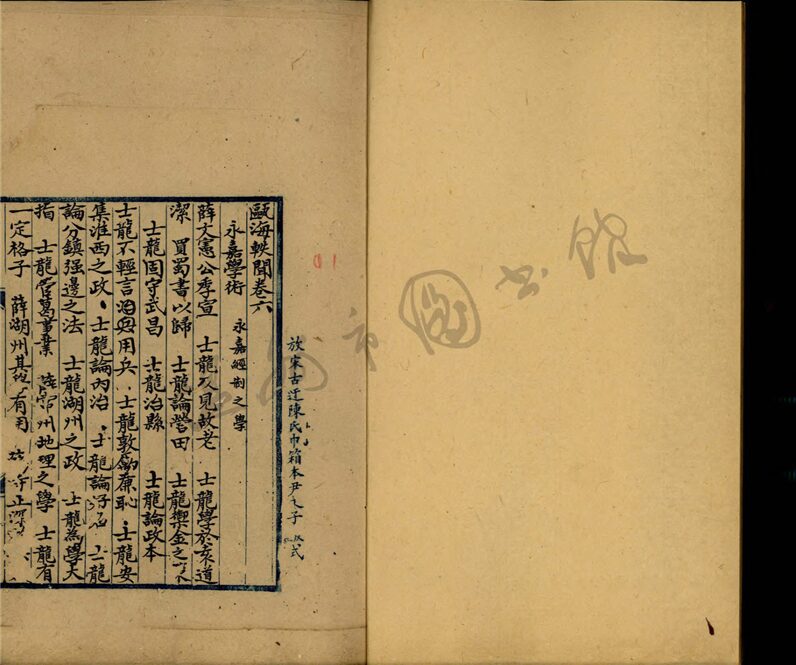 放宋古迂陳氏巾箱本尹文子 款式
甌海軼聞卷六
永嘉學術 永嘉經制之學
薛文憲公季宣 士龍及見故老 士龍學於袁道
潔 買蜀書以歸 士龍論營田 士龍禦金之
士龍固守武昌 士龍治縣 士龍論政本
士龍不輕言治毋用兵 士龍敦勸廉恥 士龍安
集淮西之政 士龍論內治 士龍論 士龍
論分鎮强邊之法 士龍湖州之政 士龍為學大
指 士龍管葛事業 常州地理之學 士龍有
一定格子 薛湖州甚有用
市圖書館